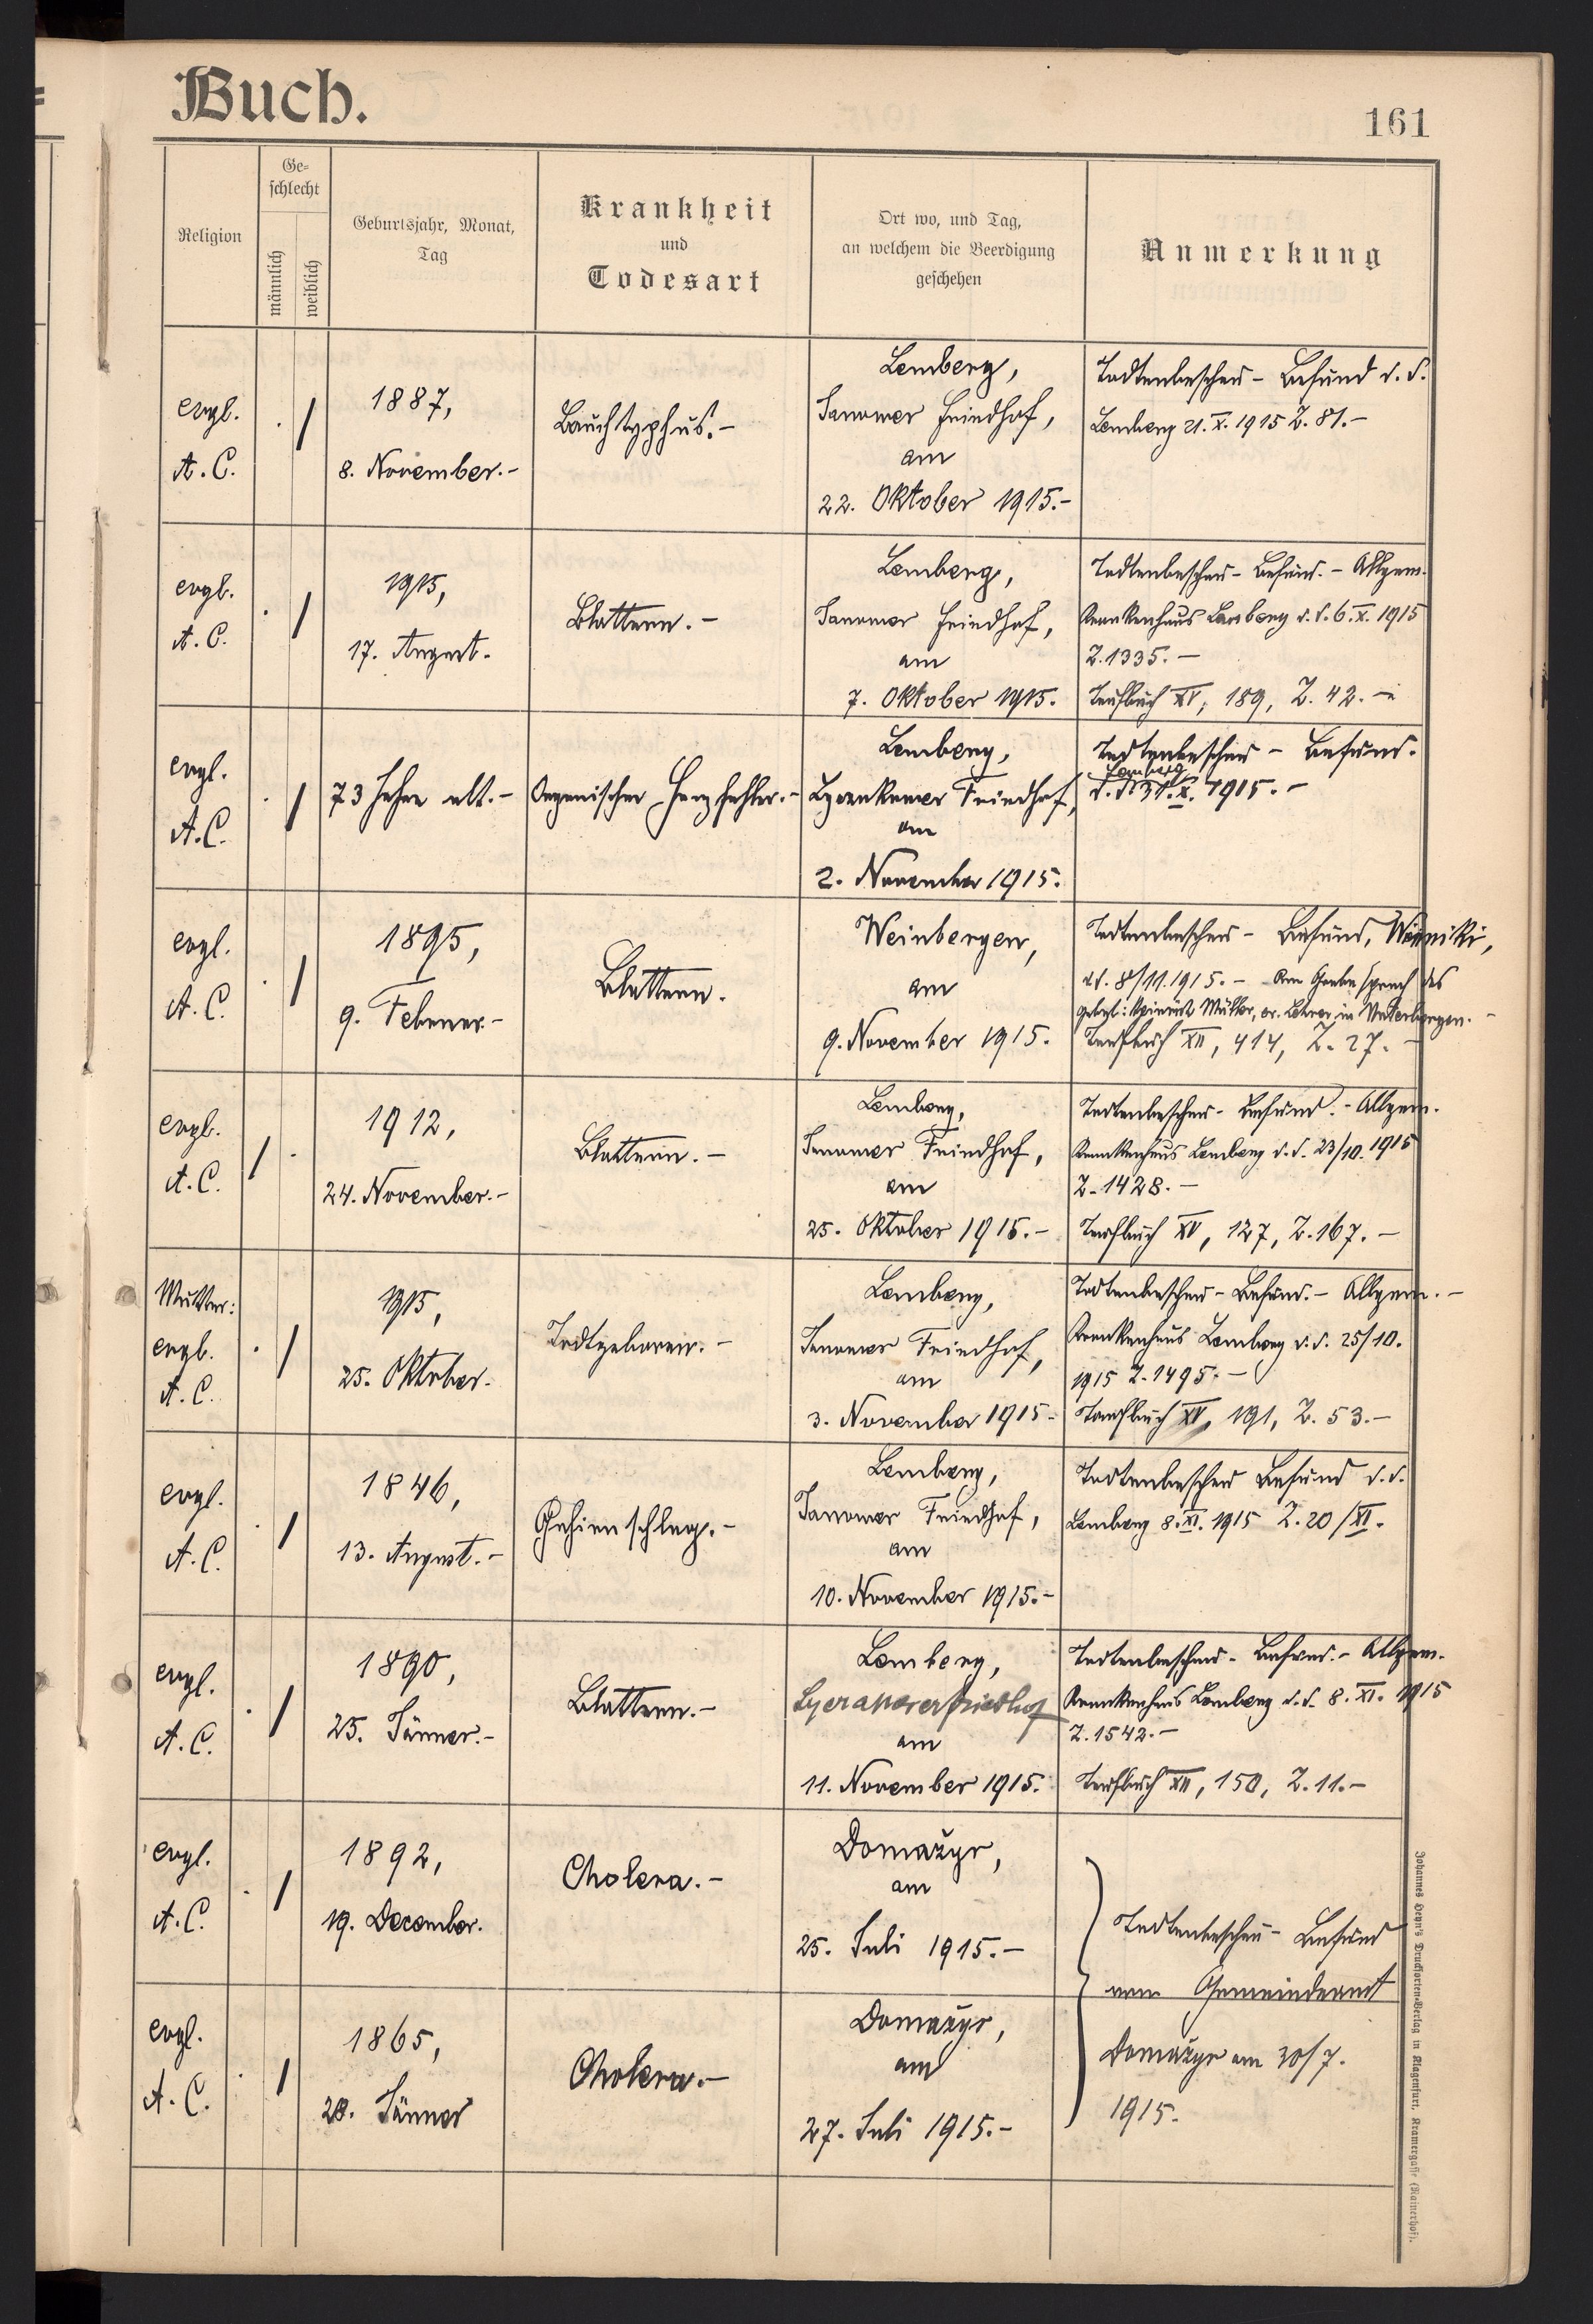 Buch.
161
Religion
Ge-
schlecht
männlich
weiblich
Geburtsjahr, Monat,
Tag
Krankheit
und
Todesart
Ort wo, und Tag,
an welchem die Beerdigung
geschehen
Anmerkung
evgl.
A. C.
1887,
8. November.-
Bauchtyphus.-
Lemberg,
Janower Friedhof,
am
22. Oktober 1915.-
Todtenbeschau-Befund d. d.
Lemberg 21. X. 1915 Z. 81.-
evgl.
A. C.
1915,
17. August.
Blattern.-
Lemberg,
Janower Friedhof,
am
7. Oktober 1915.
Todtenbeschau-Befund.- Allgem.
Krankenhaus Lemberg d. d. 6. X. 1915
Z. 1335.-
Taufbuch XV, 189, Z. 42.-
evgl.
A. C.
73 Jahre alt.-
Organischer Herzfehler.-
Lemberg,
Lyczakower Friedhof,
am
2. November 1915.
Todtenbeschau- Befund.
Lemberg
d. d. 31. X. 1915.-
evgl.
A. C.
1895,
9. Februar.-
Blattern.
Weinbergen,
am
9. November 1915.
Todtenbeschau- Befund, Winniki,
d. d. 8/11. 1915.- Am Grabe sprach das
Gebet: Heinrich Müller, ev. Lehrer in Unterbergen.-
Taufbuch XII, 414, Z. 27.-
evgl.
A. C.
1912,
24. November.-
Blattern.-
Lemberg,
Janower Friedhof,
am
25. Oktober 1915.-
Todtenbeschau- Befund.- Allgem.
Krankenhaus Lemberg d. d. 23/10. 1915
Z. 1428.-
Taufbuch XV, 127, Z. 167.-
Mutter:
evgl.
A. C.
1915,
25. Oktober.
Todtgeboren.-
Lemberg,
Janower Friedhof,
am
3. November 1915-
Todtenbeschau-Befund.- Allgem.-
Krankenhaus Lemberg d. d. 25/10.
1915 Z. 1495.-
Taufbuch XV, 191, Z. 53.-
evgl.
A. C.
1846,
13. August.-
Gehirnschlag.-
Lemberg,
Janower Friedhof,
am
10. November 1915.-
Todtenbeschau Befund d. d.
Lemberg 8. XI. 1915 Z. 20/XI.
evgl.
A. C.
1890,
25. Jänner.-
Blattern.-
Lemberg,
Lyczakower friedhof
am
11. November 1915.
Todtenbeschau- Befund.- Allgem.
Krankenhaus Lemberg d. d. 8. XI. 1915
Z. 1542.-
Taufbuch XII, 150, Z. 11.-
evgl.
A. C.
1892,
19. December.
Cholera.-
Domažyr,
am
25. Juli 1915.-
Todtenbeschau- Befund
vom Gemeindeamt
Domažyr am 30/7.
1915.
evgl.
A. C.
1865,
28. Jänner
Cholera.-
Domažyr,
am
27. Juli 1915.-
Johannes Heyn's Drucksorten-Verlag in Klagenfurt, Kramergasse (Rainerhof).